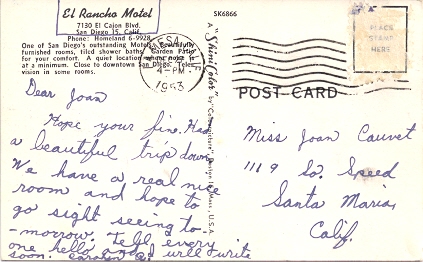 El Rancho Motel
7130 El Cajon Blvd.
San Diego 15, Calif.
Phone: Homeland 6-9928
One of San Diego's outstanding Motels. Beautifully
furnished rooms, tiled shower baths, Garden Patio
for your comfort. A quiet location where noise is
at a minimum. Close to downtown San Diego. Tele-
vision in some rooms.
SK6866
LA MESA
4-PM
1953
PLACE
STAMP
HERE
POST CARD
Dear Joan
Hope your fine. Had
a beautiful trip down
We have a real nice
room and hope to
go sight seeing to-
-morrow. Tell every
one hello and I will write
soon.
Miss Joan Cauvet
1119 So. Speed
Santa Maria,
Calif.